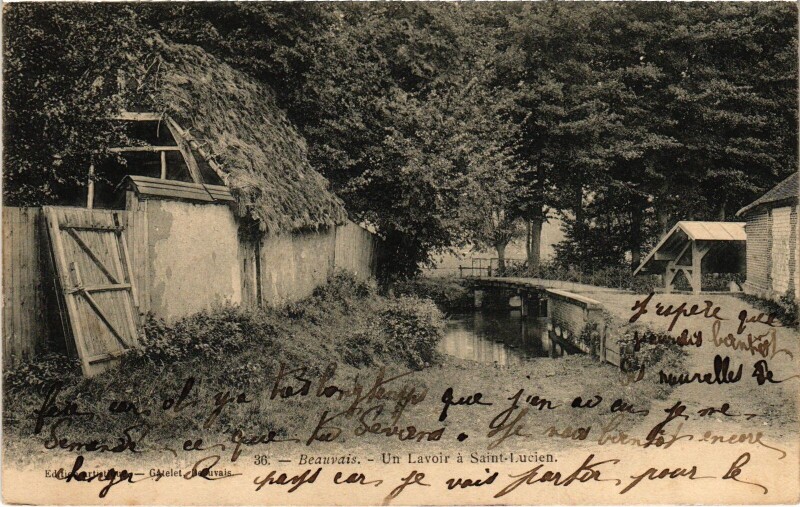 J'espère que
j'aurais bientôt
des nouvelles de
toi car il y a très longtemps que j'en ai eu je me
demande ce que tu deviens. Je vais bientôt encore
36. — Beauvais. - Un Lavoir à Saint-Lucien.
Edition artistique — Catelet, Beauvais
changer de pays car je vais partir pour le